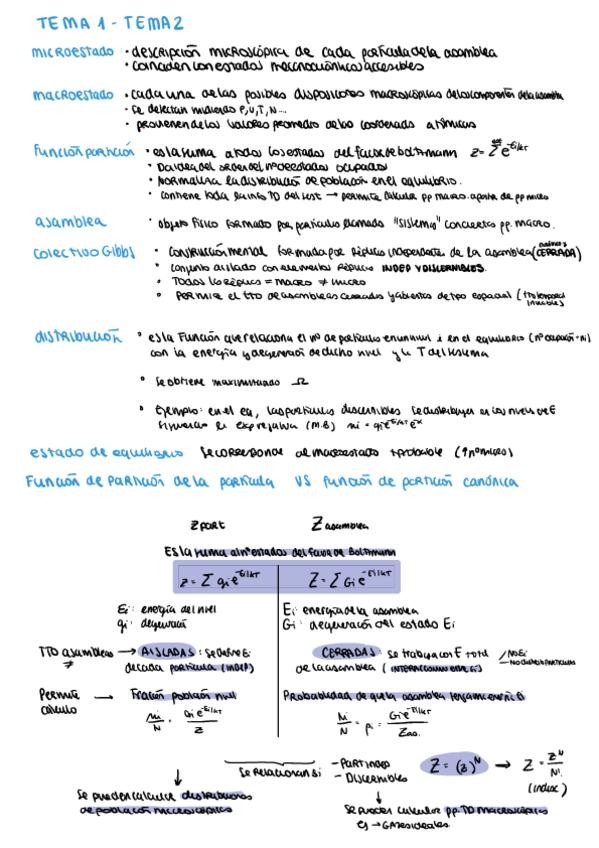 TEMA 1 - TEMA 2
microestado · descripción microscópica de cada partícula de la asamblea
· coinciden con estados mecanocuánticos accesibles
macroestado · cada una de las posibles disposiciones macroscópicas de los componentes de la asamblea
· se detectan midiendo P, V, T, N....
· provienen de los valores promedio de las coordenadas atómicas
Función partición · es la suma a todos los estados del factor de Boltzmann z = Σ e^-Ei/kT
· Da idea del orden del nº de estados ocupados
· Normaliza la distribución de población en el equilibrio.
· contiene toda la info TD del sist → permite calcular pp macro. a partir de pp micro
asamblea · objeto físico formado por partículas llamado "sistema" con ciertas pp. macro.
colectivo Gibbs · construcción mental formada por réplicas independientes de la asamblea (CERRADA)
· conjunto aislado con elementos réplicas INDEP Y DISCERNIBLES.
· Todas las réplicas = macro ≠ micro
· Permite el tto de asambleas cerradas y abiertas de tipo espacial (
distribución · es la función que relaciona el nº de partículas en un nivel i en el equilibrio (nº ocupación - Ni)
con la energía y degeneración de dicho nivel y la T del sistema
· Se obtiene maximizando Ω
· Ejemplo: en el eq, las partículas discernibles se distribuyen en los niveles de E
siguiendo la expresión (M.B) ni = gi e^-Ei/kT e^α
estado de equilibrio se corresponde al macroestado + probable (↑ nº micros)
Función de Partición de la partícula VS función de partición canónica
z part Z asamblea
Es la suma al nº estados del factor de Boltzmann
z = Σ gi e^-Ei/kT Z = Σ Gi e^-Ei/kT
Ei: energía del nivel Ei: energía de la asamblea
gi: degeneración Gi: degeneración del estado Ei
TTO asambleas ≠ → AISLADAS: se define Ei CERRADAS: se trabaja con E total / No Ei
de cada partícula (INDEP) de la asamblea (
Permite cálculo → Fración población nivel Probabilidad de que la asamblea tenga una energía Ei
Ni/N = gi e^-Ei/kT / z Ni/N = pi = Gi e^-Ei/kT / Zas.
Se relacionan si - PART INDEP
- DISCERNIBLES
Z = (z)^N → Z = z^N / N! (indisc)
Se pueden calcular distribuciones
de población microscópicas
Se pueden calcular pp. TD macroscópicas
ej → GASES ideales.